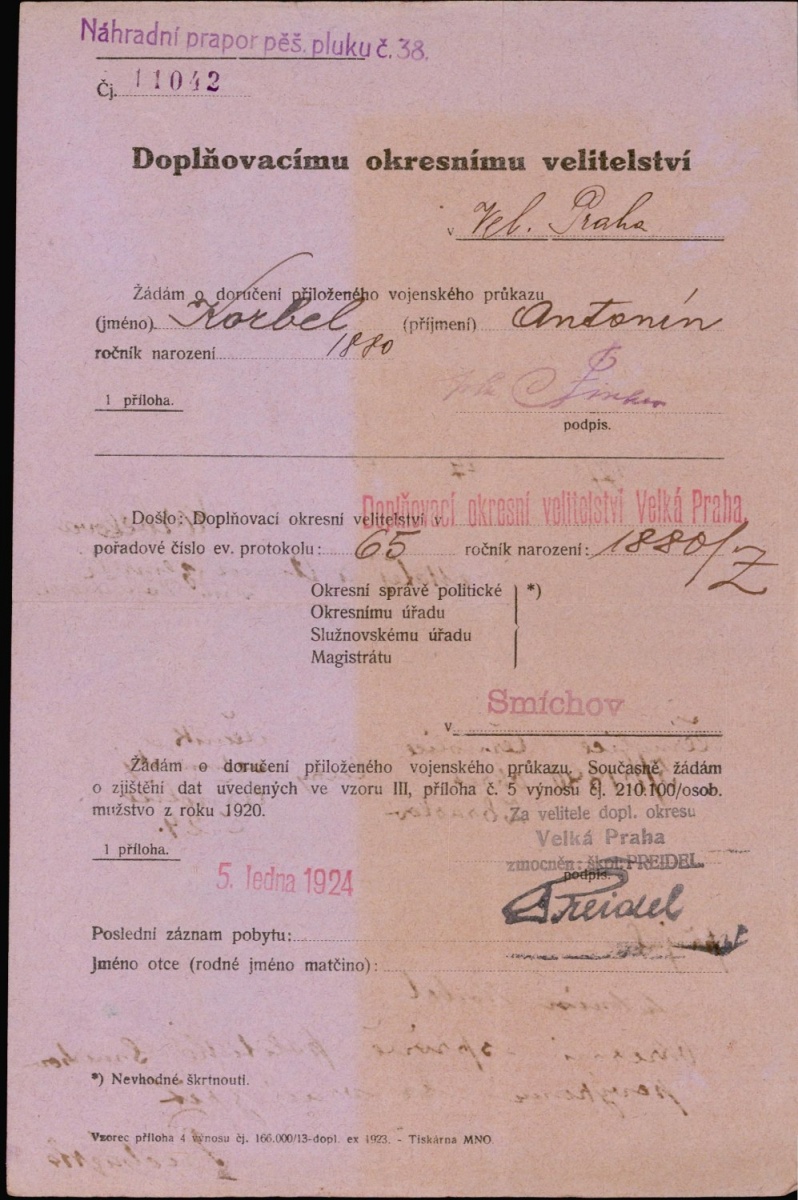 Náhradní prapor pěš. pluku č. 38.
Čj. 11042
Doplňovacímu okresnímu velitelství
v Vel. Praha
Žádám o doručení přiloženého vojenského průkazu
(jméno) Korbel (příjmení) Antonín
ročník narození 1880
1 příloha.
podpis.
Došlo: Doplňovací okresní velitelství v Doplňovací okresní velitelství Velká Praha.
pořadové číslo ev. protokolu: 65 ročník narození: 1880/Z
Okresní správě politické *)
Okresnímu úřadu
Služnovskému úřadu
Magistrátu
v Smíchov
Žádám o doručení přiloženého vojenského průkazu. Současně žádám
o zjištění dat uvedených ve vzoru III, příloha č. 5 výnosu čj. 210.100/osob.
mužstvo z roku 1920.
Za velitele dopl. okresu
Velká Praha
1 příloha.
zmocněn: škpt. PREIDEL.
podpis.
5. ledna 1924
Preidel
Poslední záznam pobytu:
Jméno otce (rodné jméno matčino):
*) Nevhodné škrtnouti.
Vzorec příloha 4 výnosu čj. 166.000/13-dopl. ex 1923. - Tiskárna MNO.